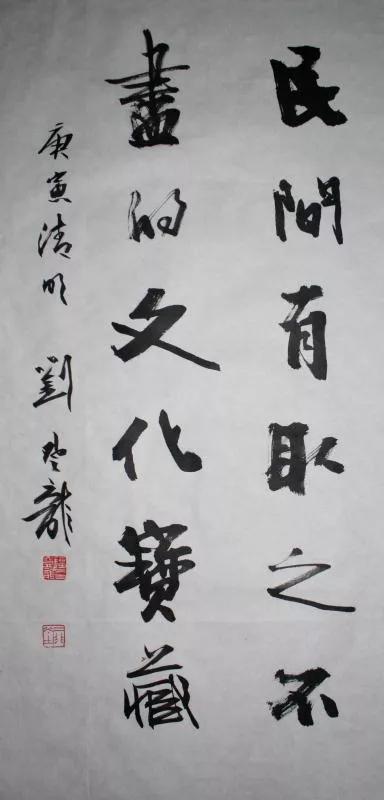 民間有取之不
盡的文化寶藏
庚寅清明 劉 龍